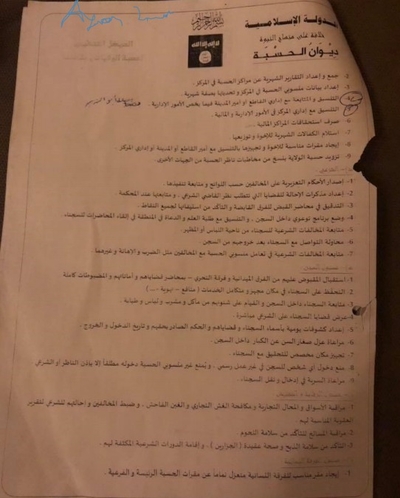 الدولة الإسلامية
خلافة على منهاج النبوة
ديوان الحسبة
جمع و إعداد التقارير الشهرية عن مراكز الحسبة في المركز.
إعداد بيانات منسوبي الحسبة في المركز و تحديثها بصفة شهرية.
التنسيق و المتابعة مع إداري القاطع أو أمير المدينة فيما يخص الأمور الإدارية.
التنسيق مع إداري المركز في الأمور الإدارية و المالية.
صرف استحقاقات المراكز المالية.
استلام الكفالات الشهرية للإخوة و توزيعها
إيجاد مقرات مناسبة للإخوة و تجهيزها بالتنسيق مع أمير القاطع أو المدينة أو إداري المركز.
تزويد حسبة الولاية بنسخ من مخاطبات ناظر الحسبة من الجهات الأخرى.
1- إصدار الأحكام التعزيرية على المخالفين حسب اللوائح و متابعة تنفيذها.
2- إعداد مذكرات الإحالة للقضايا التي تتطلب نظر القاضي الشرعي، و متابعتها عند المحكمة.
3- التدقيق في محاضر القبض للفرق القابضة و التأكد من استيفائها لجميع النقاط.
4- وضع برنامج توعوي داخل السجن، و التنسيق مع طلبة العلم و الدعاة في المنطقة في إلقاء المحاضرات للسجناء
5- متابعة المخالفات الشرعية للسجناء من ناحية اللباس أو المظهر.
6- محاولة التواصل مع السجناء بعد خروجهم من السجن.
7- متابعة المخالفات الشرعية في تعامل منسوبي الحسبة مع المخالفين مثل الضرب و الإهانة و غيرهما
1- استقبال المقبوض عليهم من الفرق الميدانية و فرقة التحري – بمحاضر قضاياهم و أماناتهم و المضبوطات كاملة
2- التحفظ على السجناء في مكان مجهز و متكامل الخدمات
3- متابعة السجناء داخل السجن و القيام على شؤونهم من مأكل و مشرب و لباس و طبابة.
4- عرض قضايا السجناء على الشرعي مباشرة.
5- إعداد كشوفات يومية بأسماء السجناء و قضاياهم و الحكم الصادر بحقهم و تاريخ الدخول و الخروج.
6- مراعاة عزل صغار السن عن الكبار داخل السجن.
7- تجهيز مكان مخصص للتحقيق مع السجناء.
8- منع دخول أي شخص للسجن في غير عمل رسمي، و يمنع غير منسوبي الحسبة دخوله مطلقاً إلا بإذن الناظر أو الشرعي
9- مراعاة السرية في إدخال و نقل السجناء.
1- مراقبة الأسواق و المحال التجارية و مكافحة الغش التجاري و الغبن الفاحش، و ضبط المخالفين و إحالتهم للشرعي لتقرير
العقوبة المناسبة لهم.
2- مراقبة المسالخ للتأكد من سلامة اللحوم
3- التأكد من سلامة الذبح و صحة عقيدة ( الجزارين )، و إقامة الدورات الشرعية المكثفة لهم.
1- إيجاد مقر مناسب للفرقة النسائية منعزل تماماً عن مقرات الحسبة الرئيسة و الفرعية.